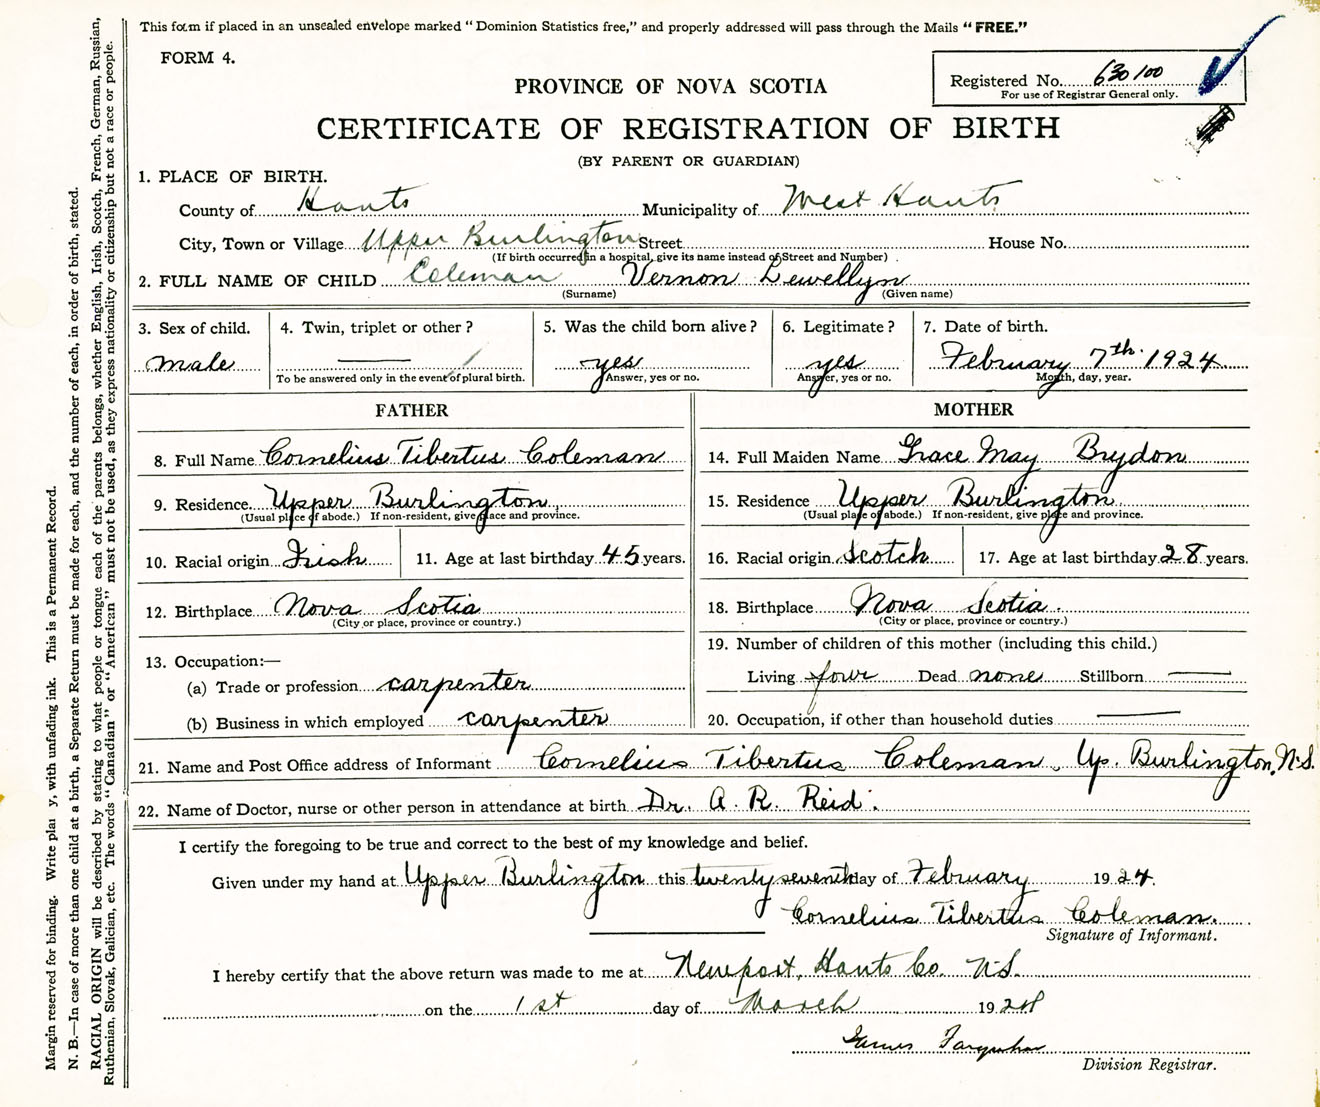 This form if placed in an unsealed envelope marked "Dominion Statistics free," and properly addressed will pass through the Mails "FREE."
FORM 4.
Registered No. 630100
For use of Registrar General only.
PROVINCE OF NOVA SCOTIA
CERTIFICATE OF REGISTRATION OF BIRTH
(BY PARENT OR GUARDIAN)
1. PLACE OF BIRTH.
County of Hants Municipality of West Hants
City, Town or Village Upper Burlington Street House No.
(If birth occurred in a hospital, give its name instead of Street and Number)
2. FULL NAME OF CHILD Coleman Vernon Lewellyn
(Surname) (Given name)
3. Sex of child. 4. Twin, triplet or other? 5. Was the child born alive? 6. Legitimate? 7. Date of birth.
male — yes yes February 7th 1924
To be answered only in the event of plural birth. Answer, yes or no. Answer, yes or no. Month, day, year.
FATHER
8. Full Name Cornelius Tibertus Coleman
9. Residence Upper Burlington
(Usual place of abode.) If non-resident, give place and province.
10. Racial origin Irish 11. Age at last birthday 45 years.
12. Birthplace Nova Scotia
(City or place, province or country.)
13. Occupation:—
(a) Trade or profession carpenter
(b) Business in which employed carpenter
MOTHER
14. Full Maiden Name Grace May Brydon
15. Residence Upper Burlington
(Usual place of abode.) If non-resident, give place and province.
16. Racial origin Scotch 17. Age at last birthday 28 years.
18. Birthplace Nova Scotia.
(City or place, province or country.)
19. Number of children of this mother (including this child.)
Living four Dead none Stillborn —
20. Occupation, if other than household duties —
21. Name and Post Office address of Informant Cornelius Tibertus Coleman, Up. Burlington, N.S.
22. Name of Doctor, nurse or other person in attendance at birth Dr. A. R. Reid.
I certify the foregoing to be true and correct to the best of my knowledge and belief.
Given under my hand at Upper Burlington this twenty seventh day of February 1924.
Cornelius Tibertus Coleman.
Signature of Informant.
I hereby certify that the above return was made to me at Newport, Hants Co. N.S.
on the 1st day of March 1924
James Farquhar
Division Registrar.
Margin reserved for binding. Write plai y, with unfading ink. This is a Permanent Record.
N. B.—In case of more than one child at a birth, a Separate Return must be made for each, and the number of each, in order of birth, stated.
RACIAL ORIGIN will be described by stating to what people or tongue each of the parents belongs, whether English, Irish, Scotch, French, German, Russian,
Ruthenian, Slovak, Galician, etc. The words "Canadian" or "American" must not be used, as they express nationality or citizenship but not a race or people.